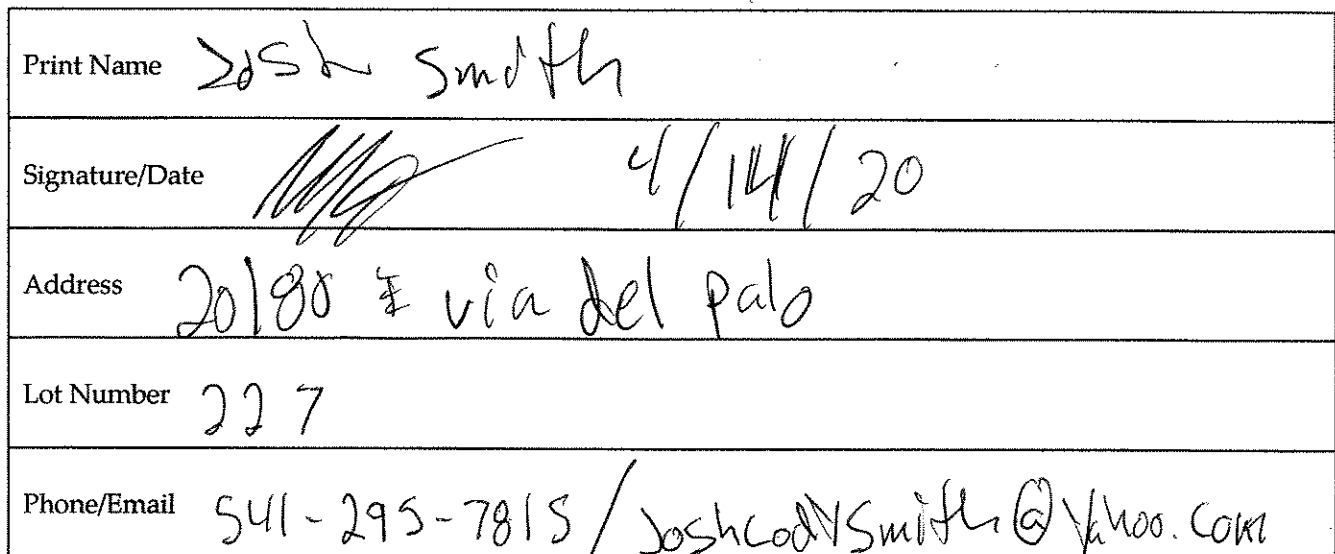 Print Name Josh Smith
Signature/Date 4/14/20
Address 20180 E via del palo
Lot Number 227
Phone/Email 541-295-7815/JoshcodySmith@Yahoo.com